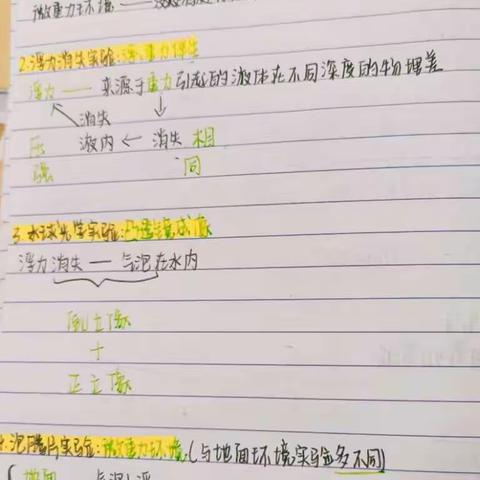 微重力环境——
2.浮力消失实验:
浮力——来源于重力引起的液体在不同深度的物理差
消失
压 液内 ← 消失 相
强 同
3.水球光学实验:凸透镜成像
浮力消失——气泡在水内
倒立像
+
正立像
4.泡腾片实验:微重力环境(与地面环境实验多不同)
地面——气泡上浮